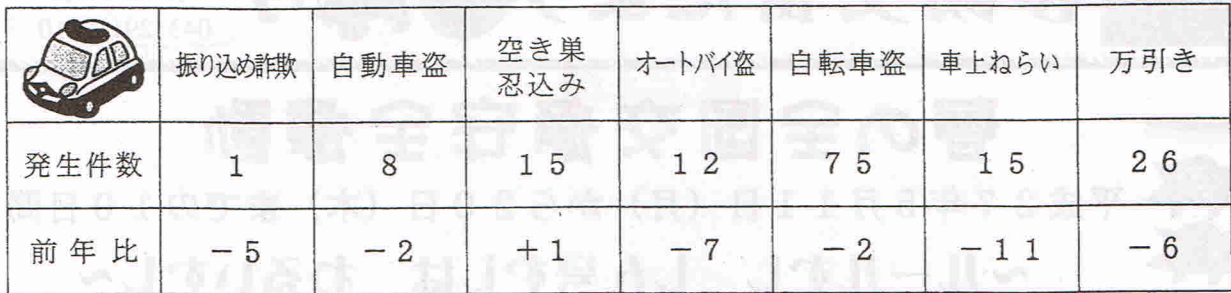 振り込め詐欺 自動車盗 空き巣 忍込み オートバイ盗 自転車盗 車上ねらい 万引き
発生件数 1 8 15 12 75 15 26
前年比 −5 −2 +1 −7 −2 −11 −6